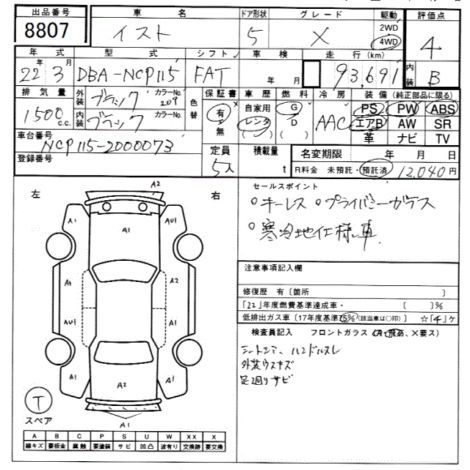 出品番号 車名 ドア形状 グレード 駆動 評価点
8807 イスト 5 X 2WD 4WD 4
年式 型式 シフト 車検 走行(km) 内装
22 3 DBA-NCP115 FAT 93,691 B
排気量 外装 ブラック カラーNo. 209 色替 保証書 車歴 燃料 冷房 装備(純正部品に限る)
1500 c.c. 内装 ブラック カラーNo. 有 無 自家用 レンタ G D AAC PS PW ABS
エアB AW SR
革 ナビ TV
車台番号 NCP115-2000073
登録番号
定員 5人 積載量 t
名変期限 年 月 日
R料金 未預託・預託済 12,040円
左 右
セールスポイント
・キーレス ・プライバシーガラス
・寒冷地仕様車
注意事項記入欄
修復歴 有〔箇所 〕
「22」年度燃費基準達成車・〔 〕%
低排出ガス車(17年度基準 5%(該当車は○印) ☆「4」ヶ
検査員記入 フロントガラス
ハンドルスレ
外装ウスキズ
足廻りサビ
A2
AU1 AU1
A1
A1 A1
A1
A2
A1
T
スペア
A B C P S U W X XX
線キズ 要板金 腐触 要塗装 サビ 凹凸 波有り 交換跡 要交換